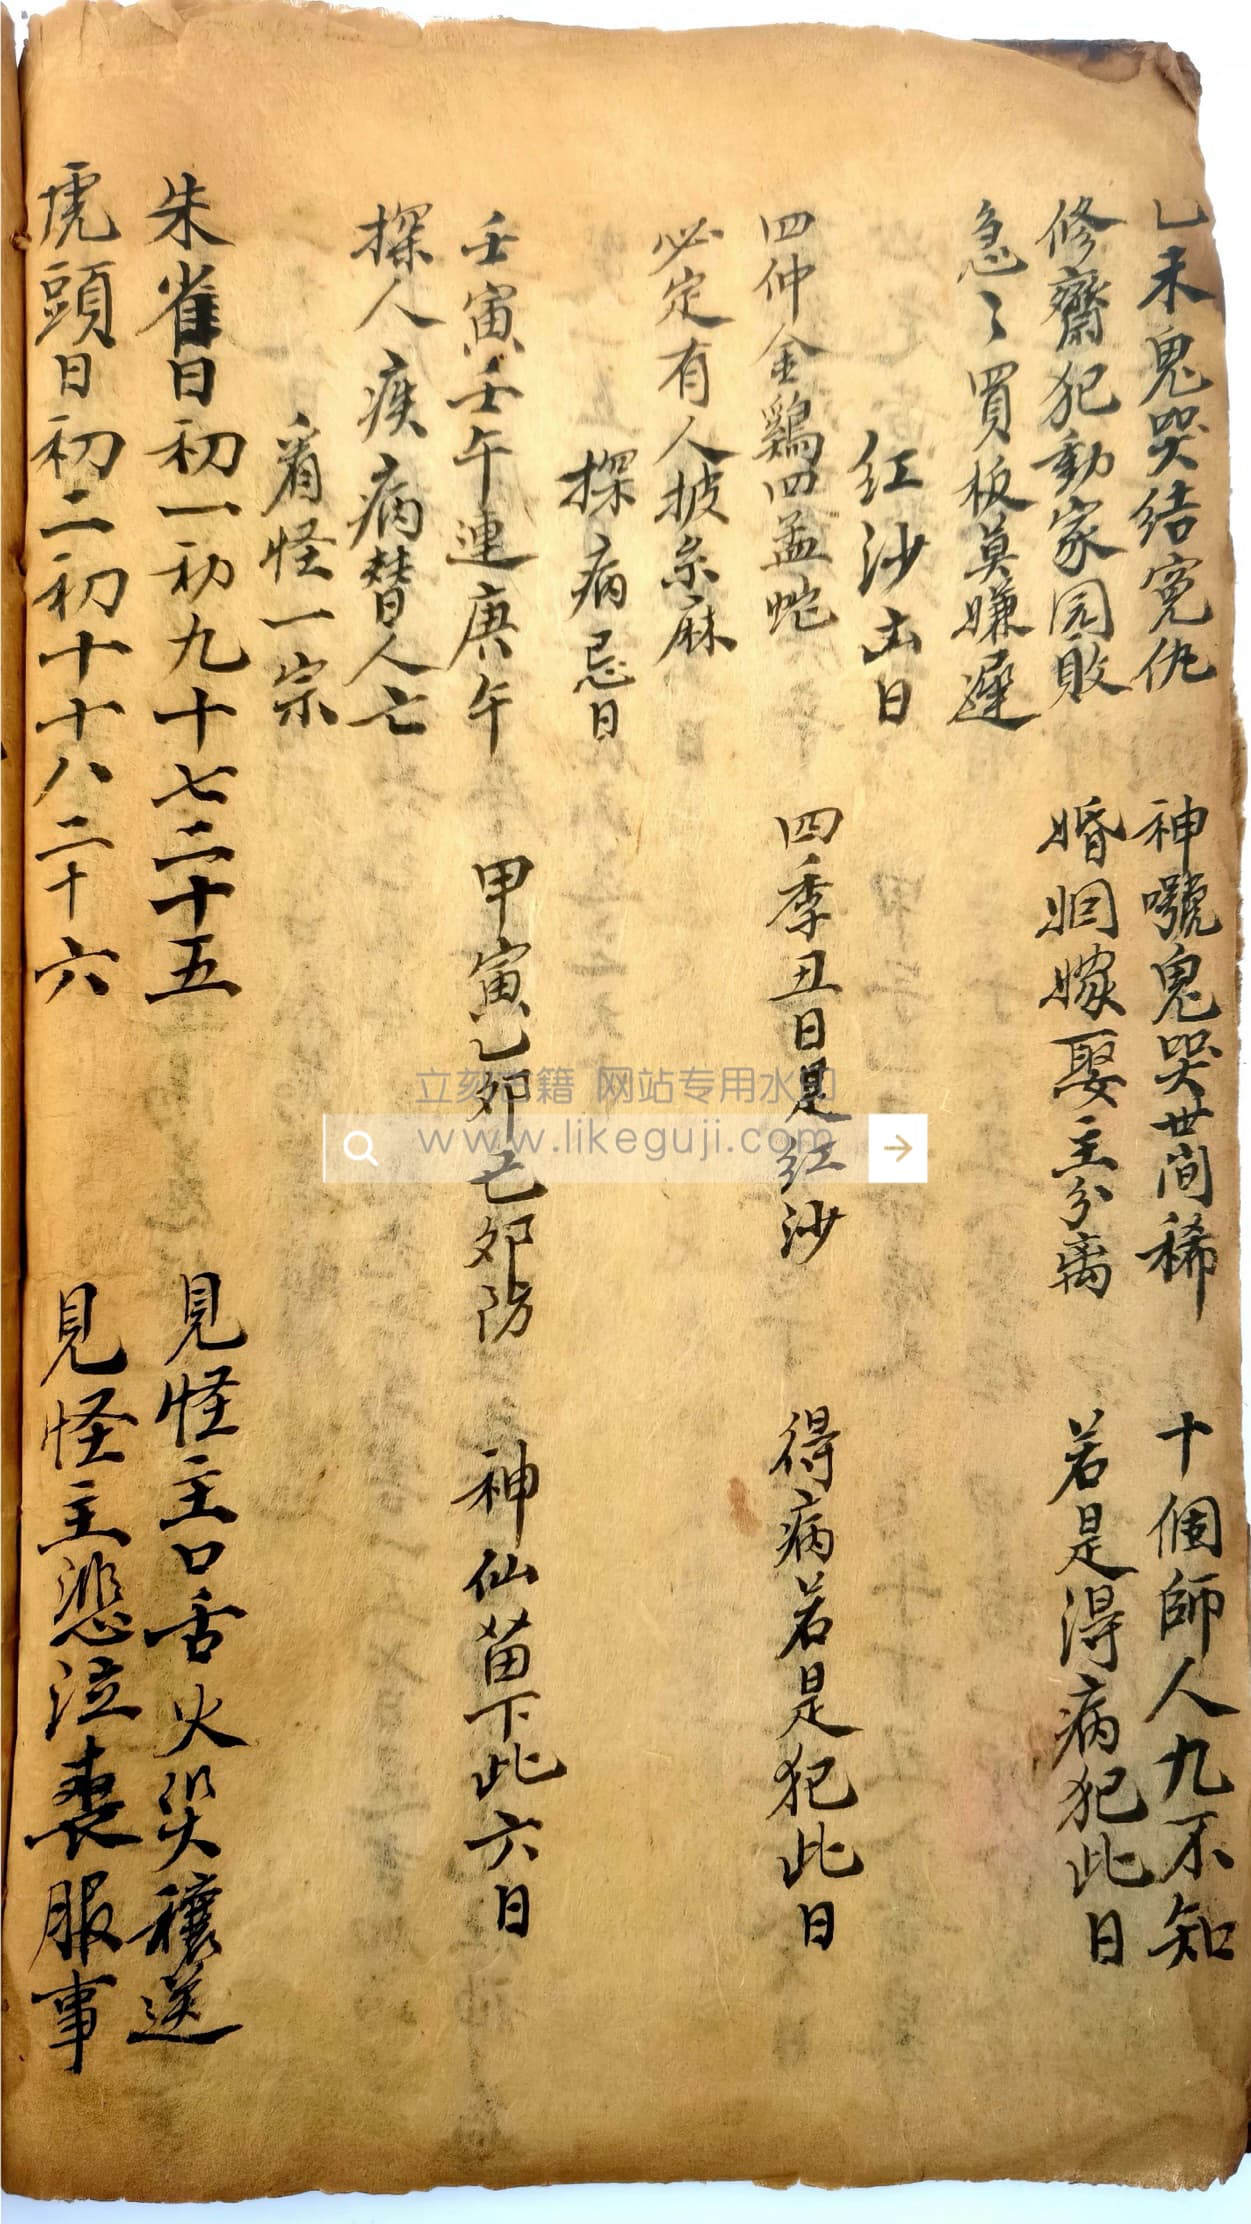 乙未鬼哭結寃仇 神號鬼哭世間稀 十個師人九不知
修齋犯動家园敗 婚姻嫁娶主分离 若是淂病犯此日
急〻買板莫嫌遲
红沙凶日
四仲金鷄四孟蛇 四季丑日是红沙 得病若是犯此日
必定有人披糸麻
探病忌日
壬寅壬午連庚午 甲寅乙夘己夘防 神仙留下此六日
探人疾病替人亡
看怪一宗
朱雀日初一初九十七二十五 見怪主口舌火災禳送
虎頭日初二初十十八二十六 見怪主悲泣喪服事
立刻古籍 网站专用水印
www.likeguji.com